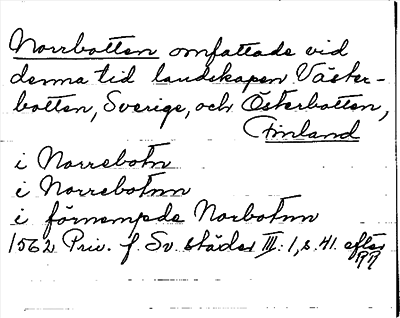 Norrbotten omfattade vid
denna tid landskapen Väster-
botten, Sverige, och Österbotten,
Finland
i Norrebotn
i Norrebotnn
i förnempde Norbotnn
1562 Priv. f. Sv. städer III: 1, s. 41. efter